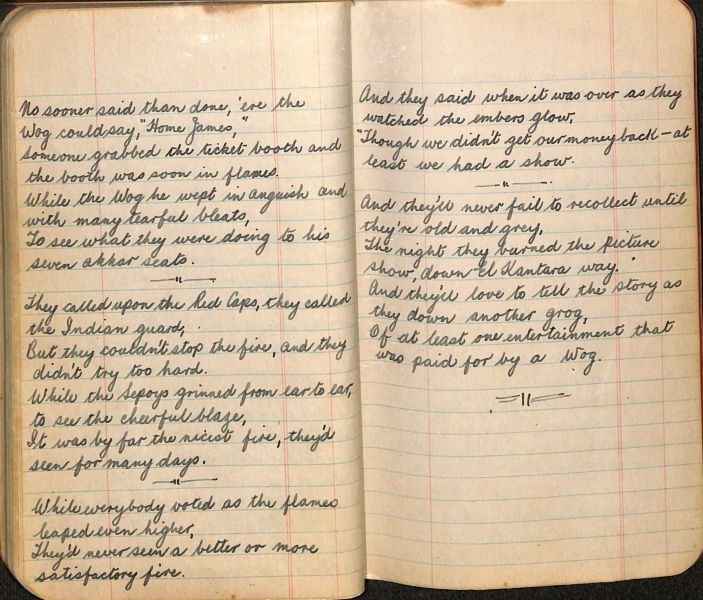 No sooner said than done, 'ere the
Wog could say, "Home James,"
Someone grabbed the ticket booth and
the booth was soon in flames.
While the Wog he wept in anguish and
with many tearful bleats,
To see what they were doing to his
seven akkar seats.
They called upon the Red Caps, they called
the Indian guard,
But they couldn't stop the fire, and they
didn't try too hard.
While the Sepoys grinned from ear to ear,
to see the cheerful blaze,
It was by far the nicist fire, they'd
seen for many days.
While everybody voted as the flames
leaped even higher,
They'd never seen a better or more
satisfactory fire.
And they said when it was over as they
watched the embers glow,
"Though we didn't get our money back — at
least we had a show.
And they'll never fail to recollect until
they're old and grey,
The night they burned the picture
show, down El Kantara way."
And they'll love to tell the story as
they down another grog,
Of at least one entertainment that
was paid for by a Wog.